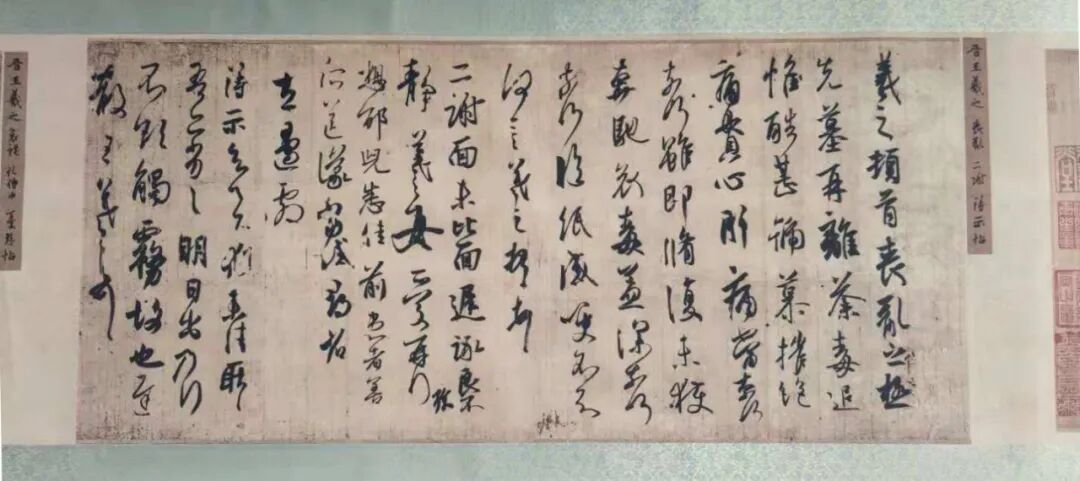 晉王羲之 喪亂 二謝 得示帖
羲之頓首喪亂之極
先墓再離荼毒追
惟酷甚號慕摧絕
痛貫心肝痛當奈何
奈何雖即脩復未獲
奔馳哀毒益深奈何
奈何臨紙感哽不知
何言羲之頓首頓首
二謝面未比面遲詠良不
靜羲之女愛再拜
想邪兒悉佳前患者善
所送議當試尋省
左邊劇
得示知足下猶未佳耿耿
吾亦劣劣明日出乃行
不欲觸霧故也遲
散王羲之頓首
晉王羲之 哀禍 孔侍中 憂懸帖